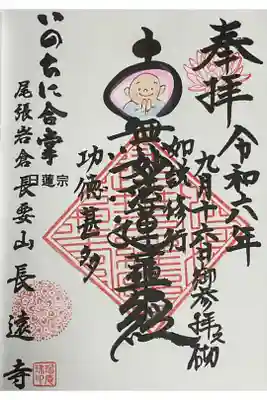 奉拝
令和六年
九月十六日御参拝之砌
如説修行
南無妙法蓮華経
功徳甚多
いのちに合掌
尾張岩倉 日蓮宗 長要山 長遠寺